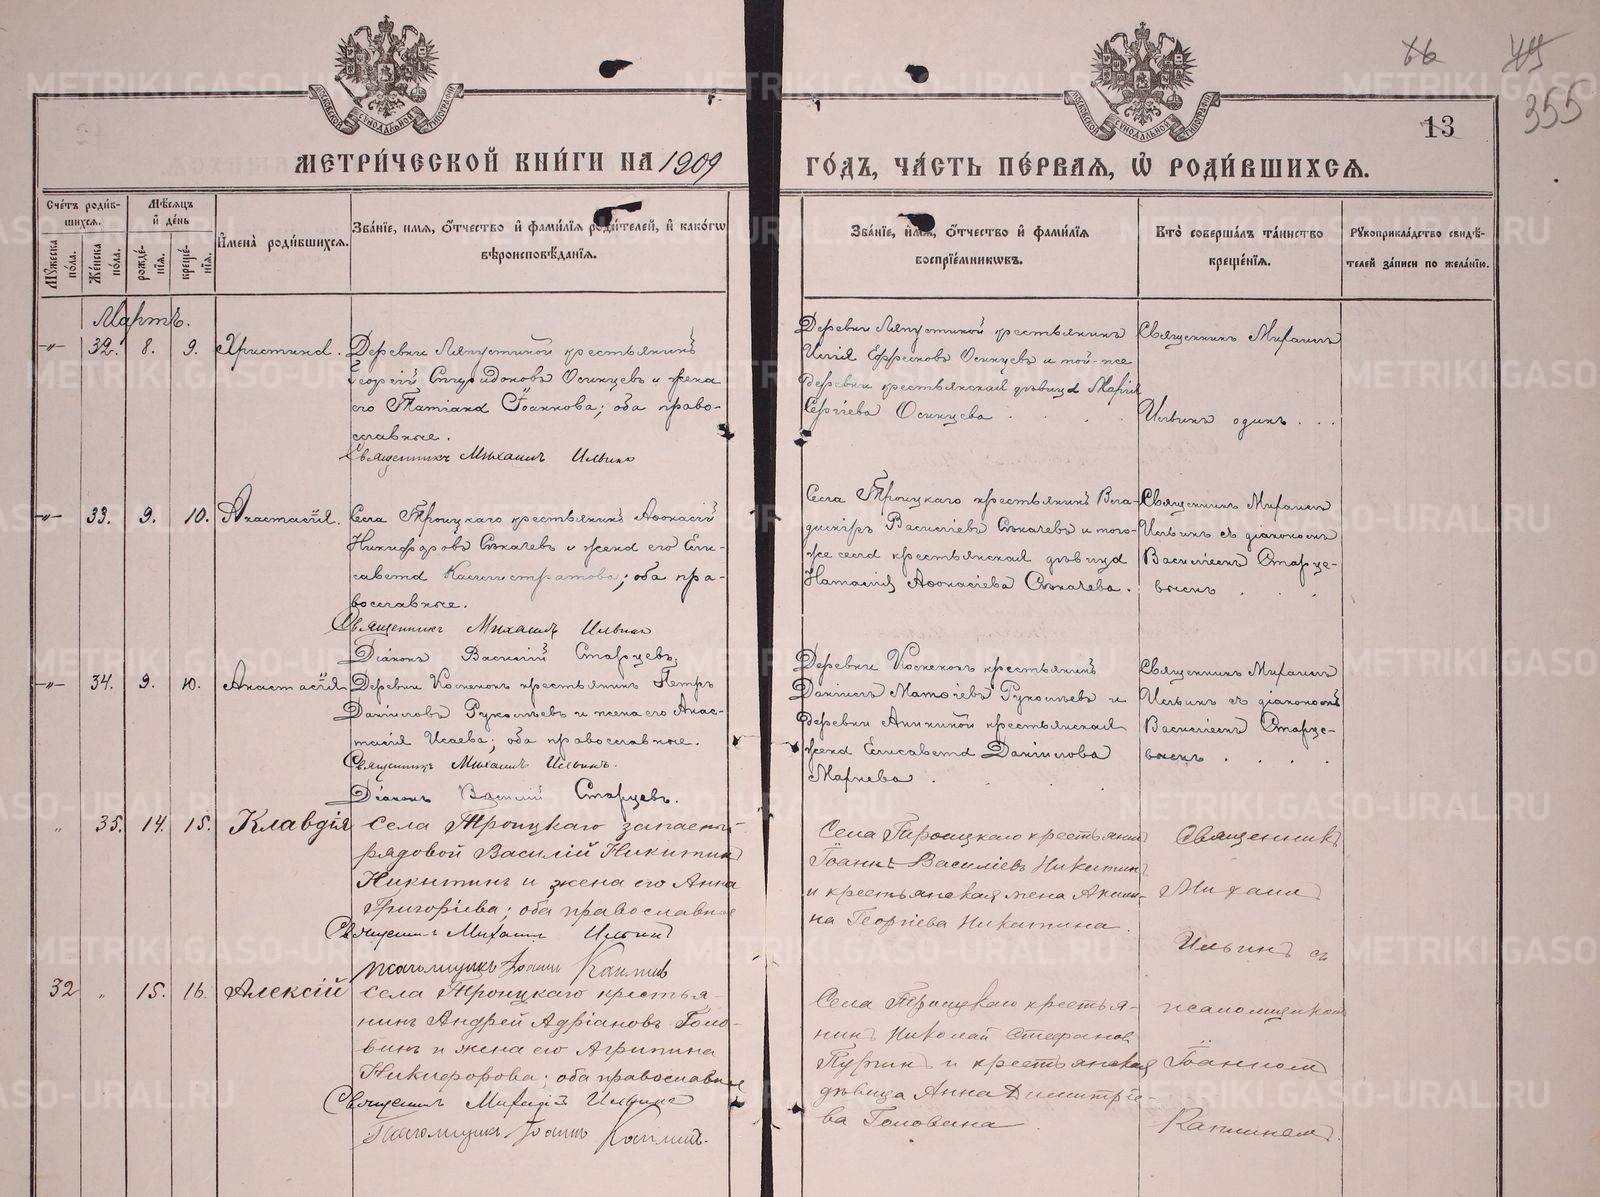 МЕТРИ́ЧЕСКОЙ КНИ́ГИ НА 1909
ГО́ДЪ, ЧА́СТЬ ПЕ́РВАЯ, Ѡ҆ РОДИ́ВШИХСѦ.
13
355
Сче́тъ роди́в-
шихсѧ.
Мѣ́сѧцъ
и҆ де́нь
Мꙋ́жеска
по́ла.
Же́нска
по́ла.
рожде́-
нїѧ.
креще́-
нїѧ.
И҆мена̀ роди́вшихсѧ.
Зва́нїе, и҆мѧ, ѻ҆́тчество и҆ фами́лїѧ роди́телей, и҆ како́гѡ
вѣроисповѣ́данїѧ.
Зва́нїе, и҆́мѧ, ѻ҆́тчество и҆ фами́лїѧ
воспрїе́мникѡвъ.
Кто̀ соверша́лъ та́инство
креще́нїѧ.
Рꙋкоприкла́дство свидѣ́-
телей за́писи по жела́нїю.
Мартъ.
-"- 32. 8. 9. Христина.
Деревни Ляпустиной крестьянинъ
Георгій Спиридоновъ Осинцевъ и жена
его Татіана Іоаннова; оба право-
славные.
Священникъ Михаилъ Ильинъ
Деревни Ляпустиной крестьянинъ
Илія Ефремовъ Осинцевъ и той-же
деревни крестьянская дѣвица Марія
Сергіева Осинцева
Священникъ Михаилъ
Ильинъ одинъ . . .
-"- 33. 9. 10. Анастасія.
Села Троицкаго крестьянинъ Аѳонасій
Никифоровъ Сѣкачевъ и жена его Ели-
савета Каллистратова; оба пра-
вославные.
Священникъ Михаилъ Ильинъ
Діаконъ Василій Старцевъ.
Села Троицкаго крестьянинъ Вла-
диміръ Василіевъ Сѣкачевъ и того-
же села крестьянская дѣвица
Наталія Аѳонасіева Сѣкачева.
Священникъ Михаилъ
Ильинъ съ діакономъ
Василіемъ Старце-
вымъ . . .
-"- 34. 9. 10. Анастасія
Деревни Коснекокъ крестьянинъ Петръ
Даніиловъ Рукомѣевъ и жена его Анас-
тасія Исаева; оба православные.
Священникъ Михаилъ Ильинъ.
Діаконъ Василій Старцевъ.
Деревни крестьянинъ
Даніилъ Матѳіевъ и
деревни Аникиной крестьянская
жена Елисавета Даніилова
Священникъ Михаилъ
Ильинъ съ діакономъ
Василіемъ Старце-
вымъ . . . .
" 35. 14. 15. Клавдія
Села Троицкаго запасный
рядовой Василій Никитинъ
Никитинъ и жена его Анна
Григоріева; оба православные
Священникъ Михаилъ Ильинъ
Псаломщикъ Іоаннъ
Села Троицкаго крестьянинъ
Іоаннъ Василіевъ Никитинъ
и крестьянская жена Акили-
на Георгіева Никитина.
Священникъ
Михаилъ
Ильинъ съ
псаломщикомъ
Іоанномъ
32 " 15. 16. Алексій
Села Троицкаго крестья-
нинъ Андрей Адріановъ Голо-
винъ и жена его Агрипина
Никифорова; оба православные
Священникъ Михаилъ Ильинъ
Псаломщикъ Іоаннъ
Села Троицкаго крестья-
нинъ Николай Стефановъ
и крестьянская
дѣвица Анна Димитріе-
ва Головина
METRIKI.GASO-URAL.RU